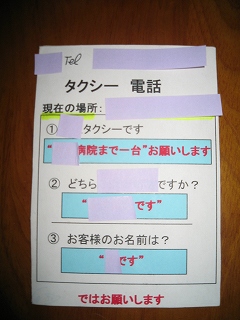 Tel
タクシー 電話
現在の場所:
① タクシーです
“ 病院まで一台”お願いします
② どちら ですか？
“ です”
③ お客様のお名前は？
“ です”
ではお願いします